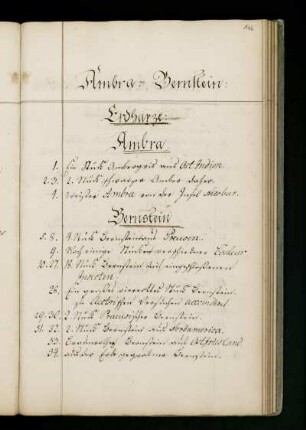 Ambra- Bernstein:
Erdharze:
Ambra
1. Ein Stück Ambergris aus Ost Indien
2-3. 2. Stück schwarze Amber daher.
4. Ambra von der Insel
Bernstein
5. 8. 4 Stück Bernstein aus Preusen.
9. Noch einige Stücke
10-27. 18. Stück Bernstein mit eingeschlossenen
Insecten
28. Ein großes Stück Bernstein
zu Electrischen Versuchen
29-30. 2 Stück Bernstein.
31. 32. 2. Stück Bernstein aus Nordamerica.
33. Bernstein aus
34. aus der Erde gegrabener Bernstein.